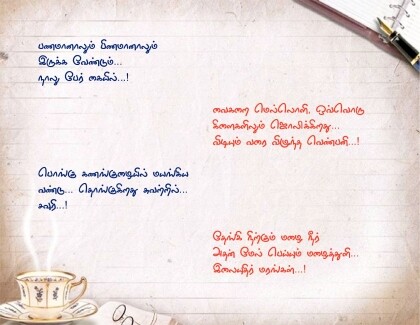 பணமானாலும் பிணமானாலும்
இருக்க வேண்டும்...
நாலு பேர் கையில்...!
வைகறை மெல்லொளி, ஒவ்வொரு
கிளைகளிலும் ஜொலிக்கிறது...
விடியும் வரை விழுந்த வெண்பனி...!
பொங்கு மயங்கிய
வண்டு... தொங்குகிறது சுவற்றில்...
தேங்கி நிற்கும் மழை நீர்
அதன் மேல் பெய்யும் மழைத்துளி...
இலையுதிர் மரங்கள்...!